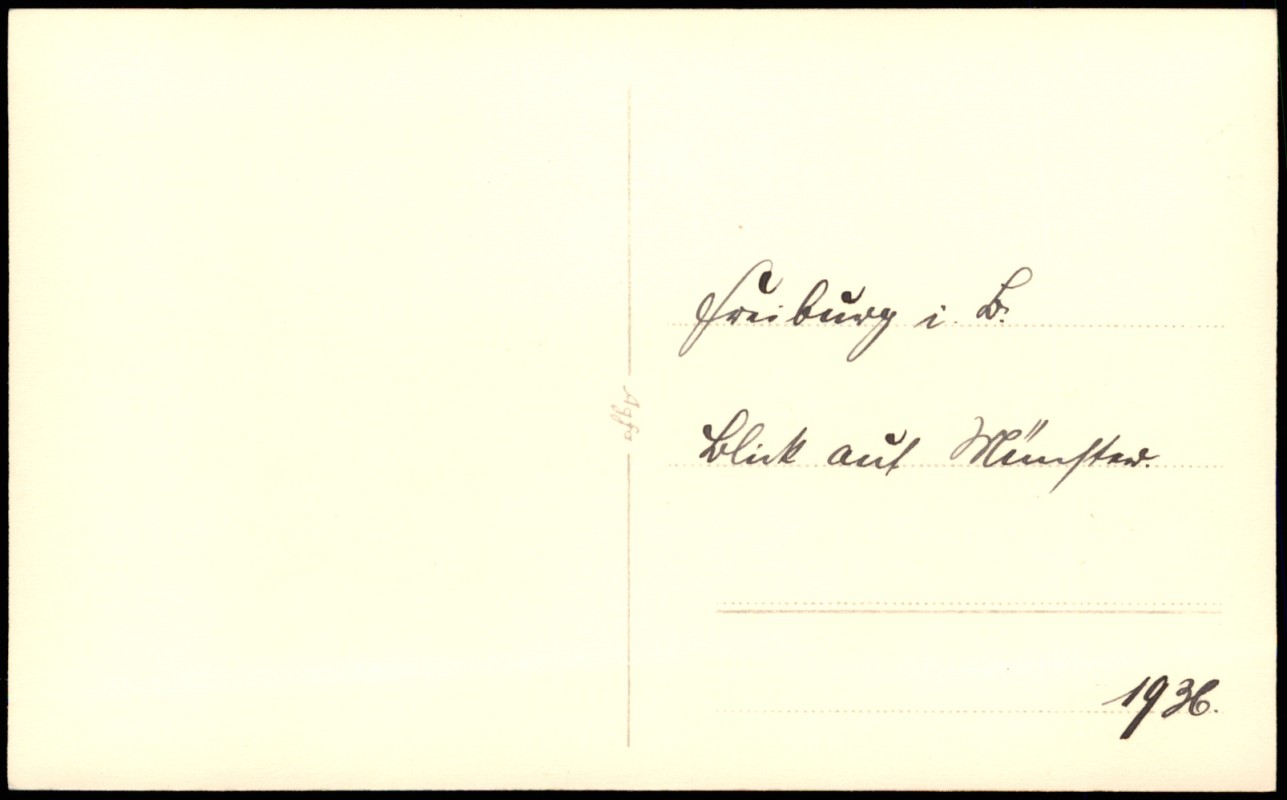 Freiburg i. B.
Blick auf Münster.
1936.
Agfa